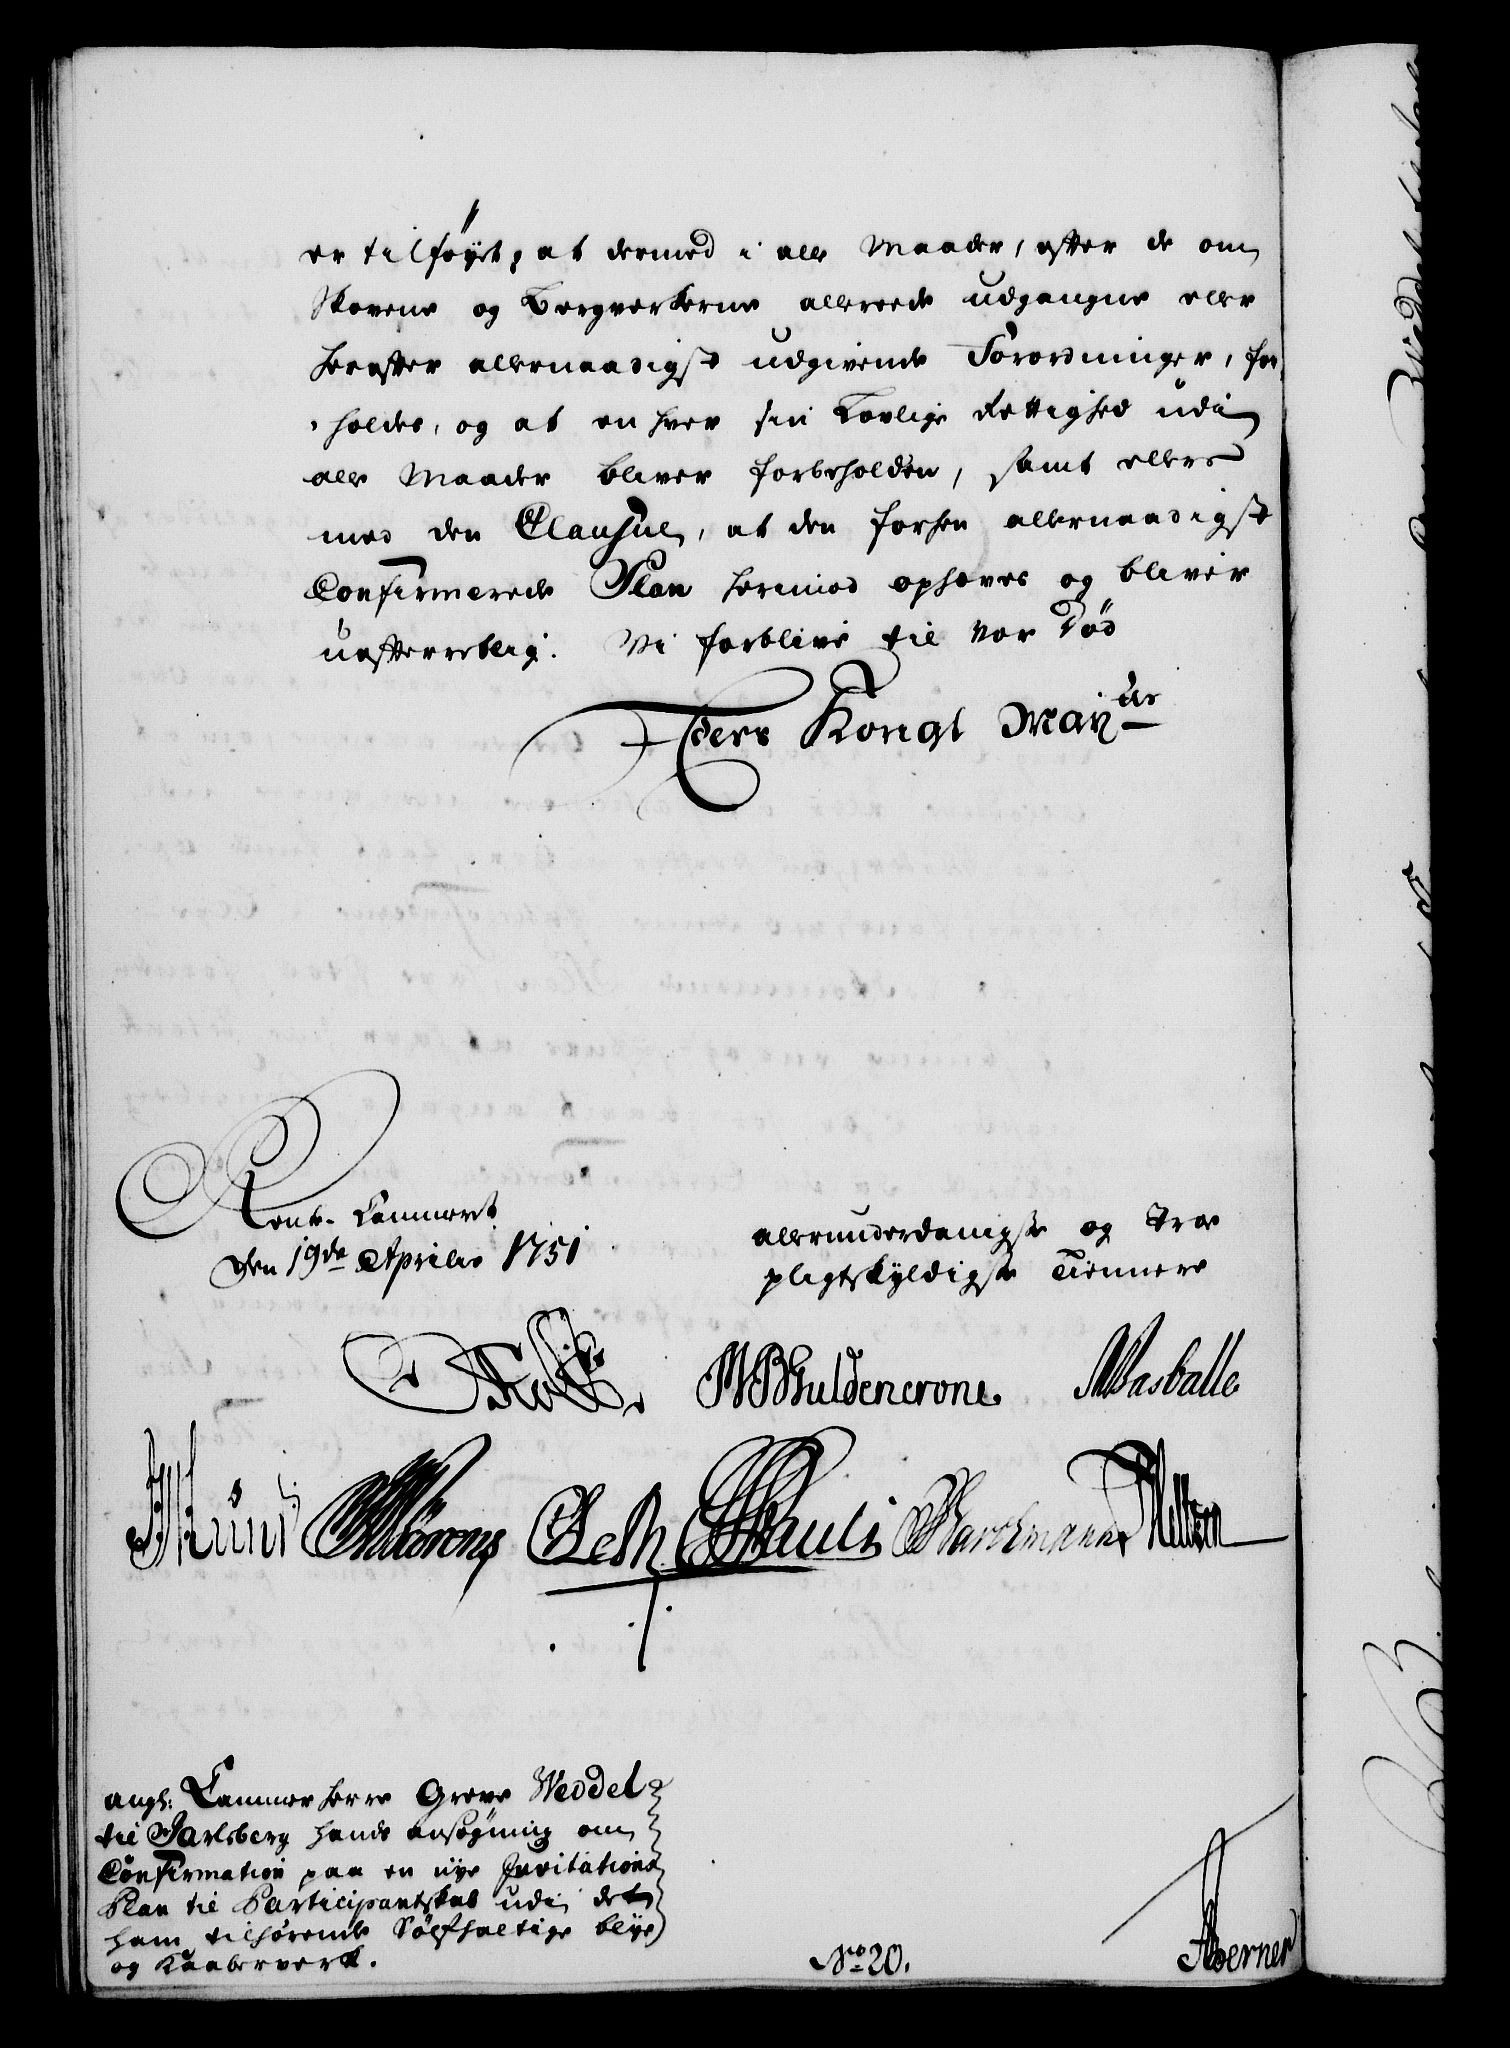 er tilføyet, at dermed i alle Maader, efter de om
Skovene og Bergverkerne allereede udgangne eller
herefter allernaadigst udgivende Forordninger, for,
holdes, og at en hver sin Lovlige Rettighed udi
alle Maader bliver forbeholden, samt ellers
med den Clausul, at den forhen allernaadigst
Confirmerede Plan hermed ophæves og bliver
uefterretlig. Vi forblive til vor Død
Eders Kongl May.ts
Rente-Cammeret
den 19de Aprilis 1751
allerunderdanigste og Troe
pligtskyldigste Tiennere
Holst. WBGuldencrone. Masballe
Leth Pauli
angl: Cammer Herre Greve Weddel
til Jarlsberg hands ansøgning om
Confirmation paa en nye Invitations
Plan til Participantskab udi det
ham tilhørende Sølfholtige blye
og Kaaberverk.
No 20.